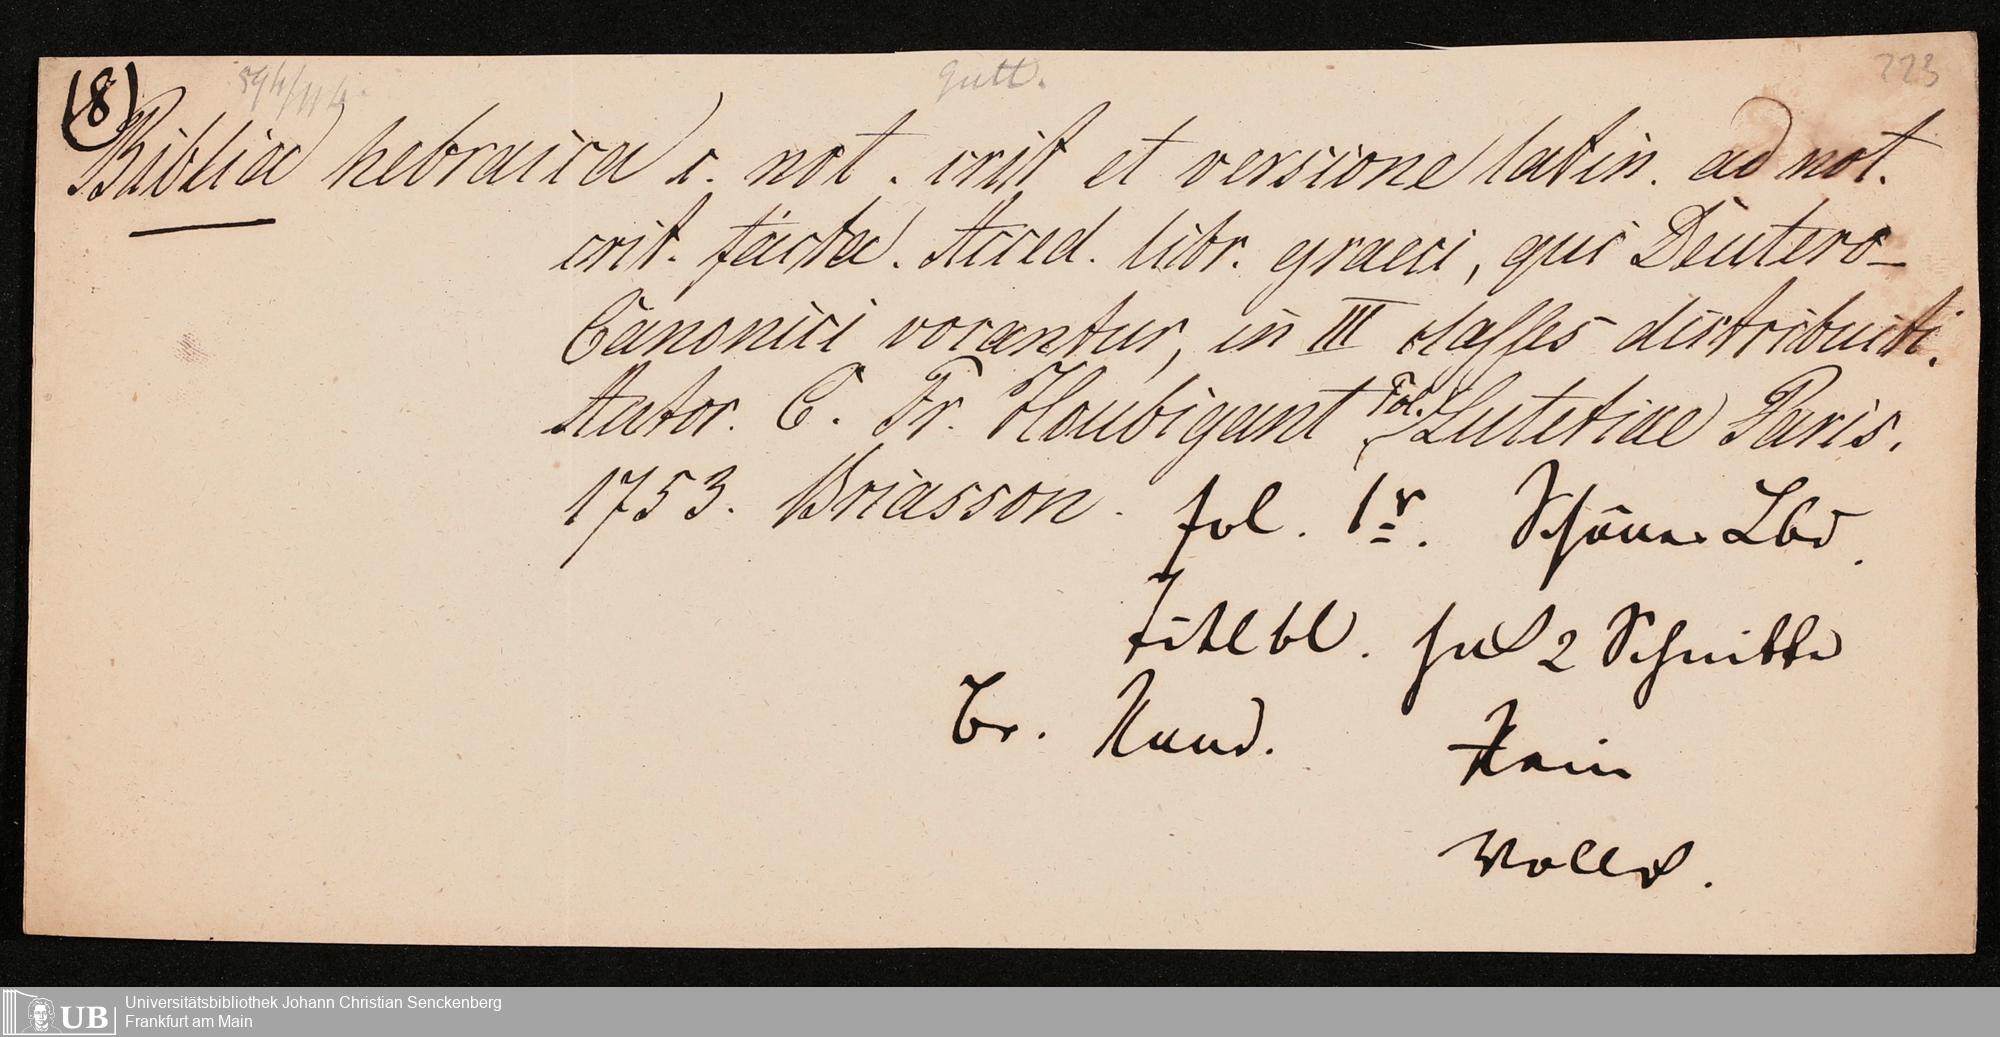 (8) 594/114. gutt. 223
Biblia hebraica c. not. crit et versione latin. ad not.
crit. facta. Acced. libr. graeci, qui Deutero-
Canonici vocantur, in III classes distributi.
Autor. C. Fr. Houbigant, Fol. Lutetiae Paris.
1753. Briasson. fol. 1r. Schöner Lbd.
Titelbl. hat 2 Schnitte
Br. Rand. Rein
Vollst.
Universitätsbibliothek Johann Christian Senckenberg
UB Frankfurt am Main